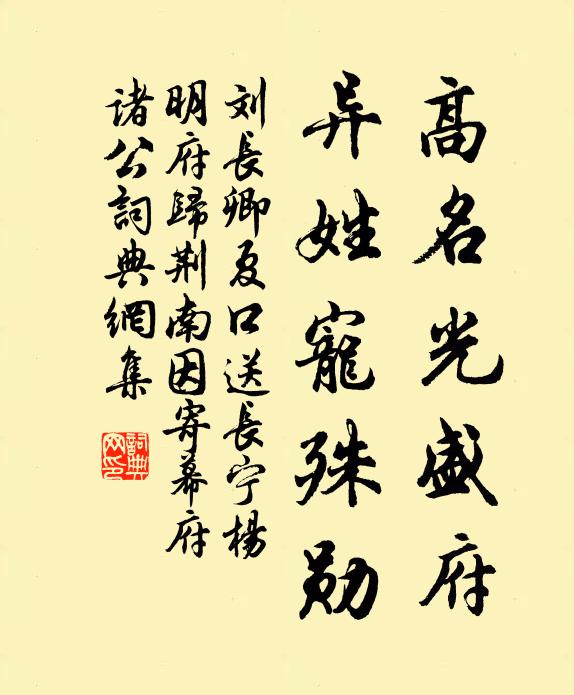 高名光盛府
异姓寵殊勋
刘長卿夏口送長宁楊
明府歸荆南因寄幕府
諸公詞典網集
詞典网印